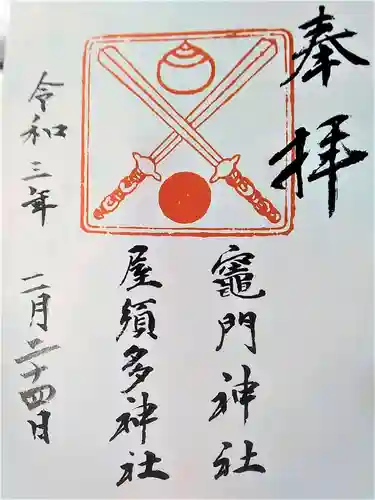 奉拝
竈門神社
屋須多神社
令和三年
二月二十四日